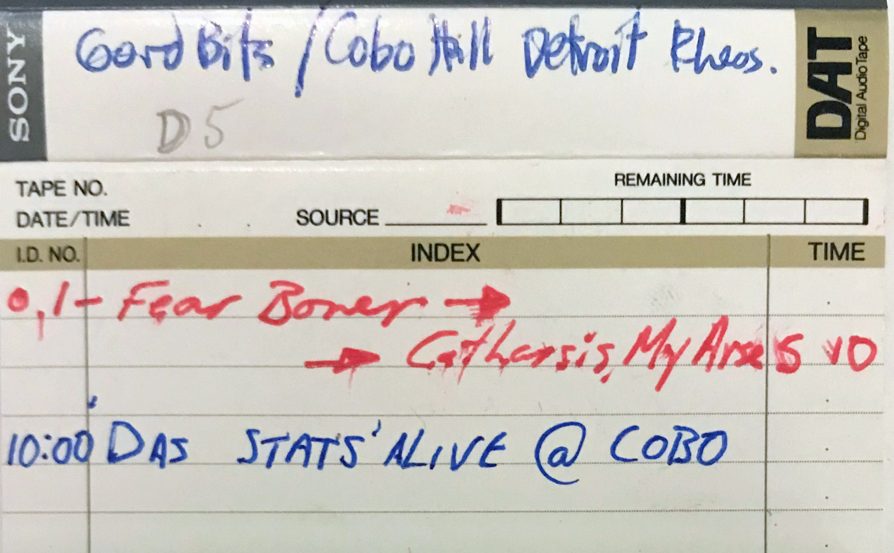 SONY
Gord Bits / Cobo Hall Detroit Rheos.
DAT
Digital Audio Tape
D5
TAPE NO.
REMAINING TIME
DATE/TIME SOURCE
I.D. NO. INDEX TIME
0,1- Fear Boner →
→ Catharsis, My Arse
10:00 DAS STATS' ALIVE @ COBO